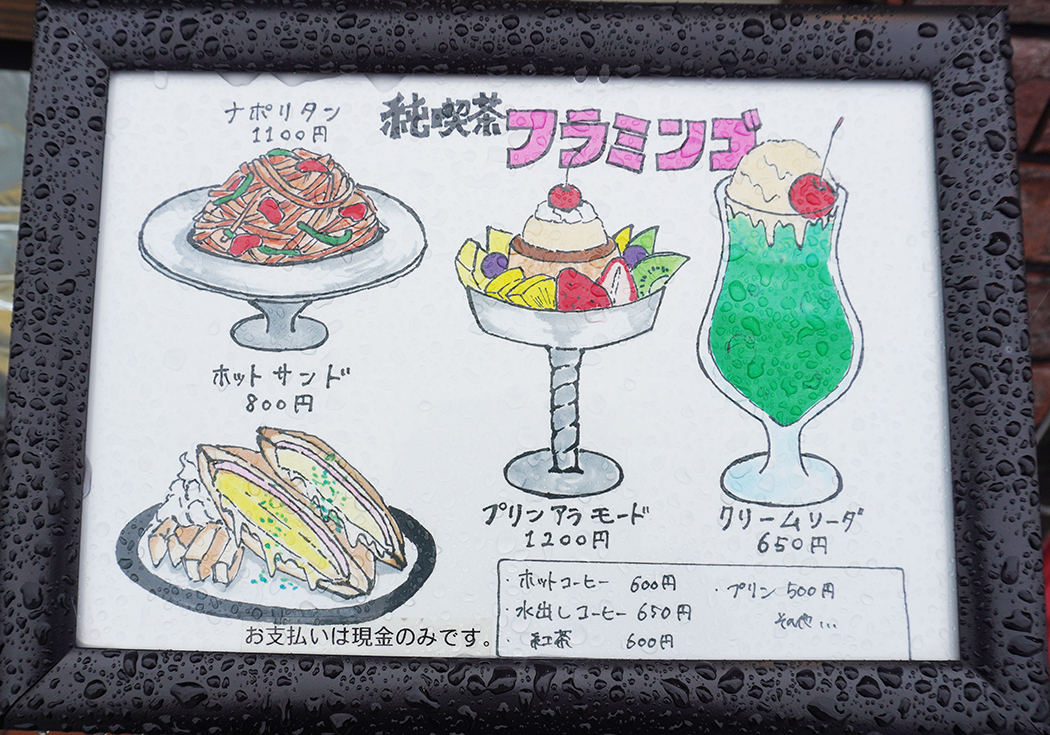 純喫茶フラミンゴ
ナポリタン
1100円
ホットサンド
800円
プリンアラモード
1200円
クリームソーダ
650円
・ホットコーヒー 600円
・水出しコーヒー 650円
・紅茶 600円
・プリン 500円
その他...
お支払いは現金のみです。